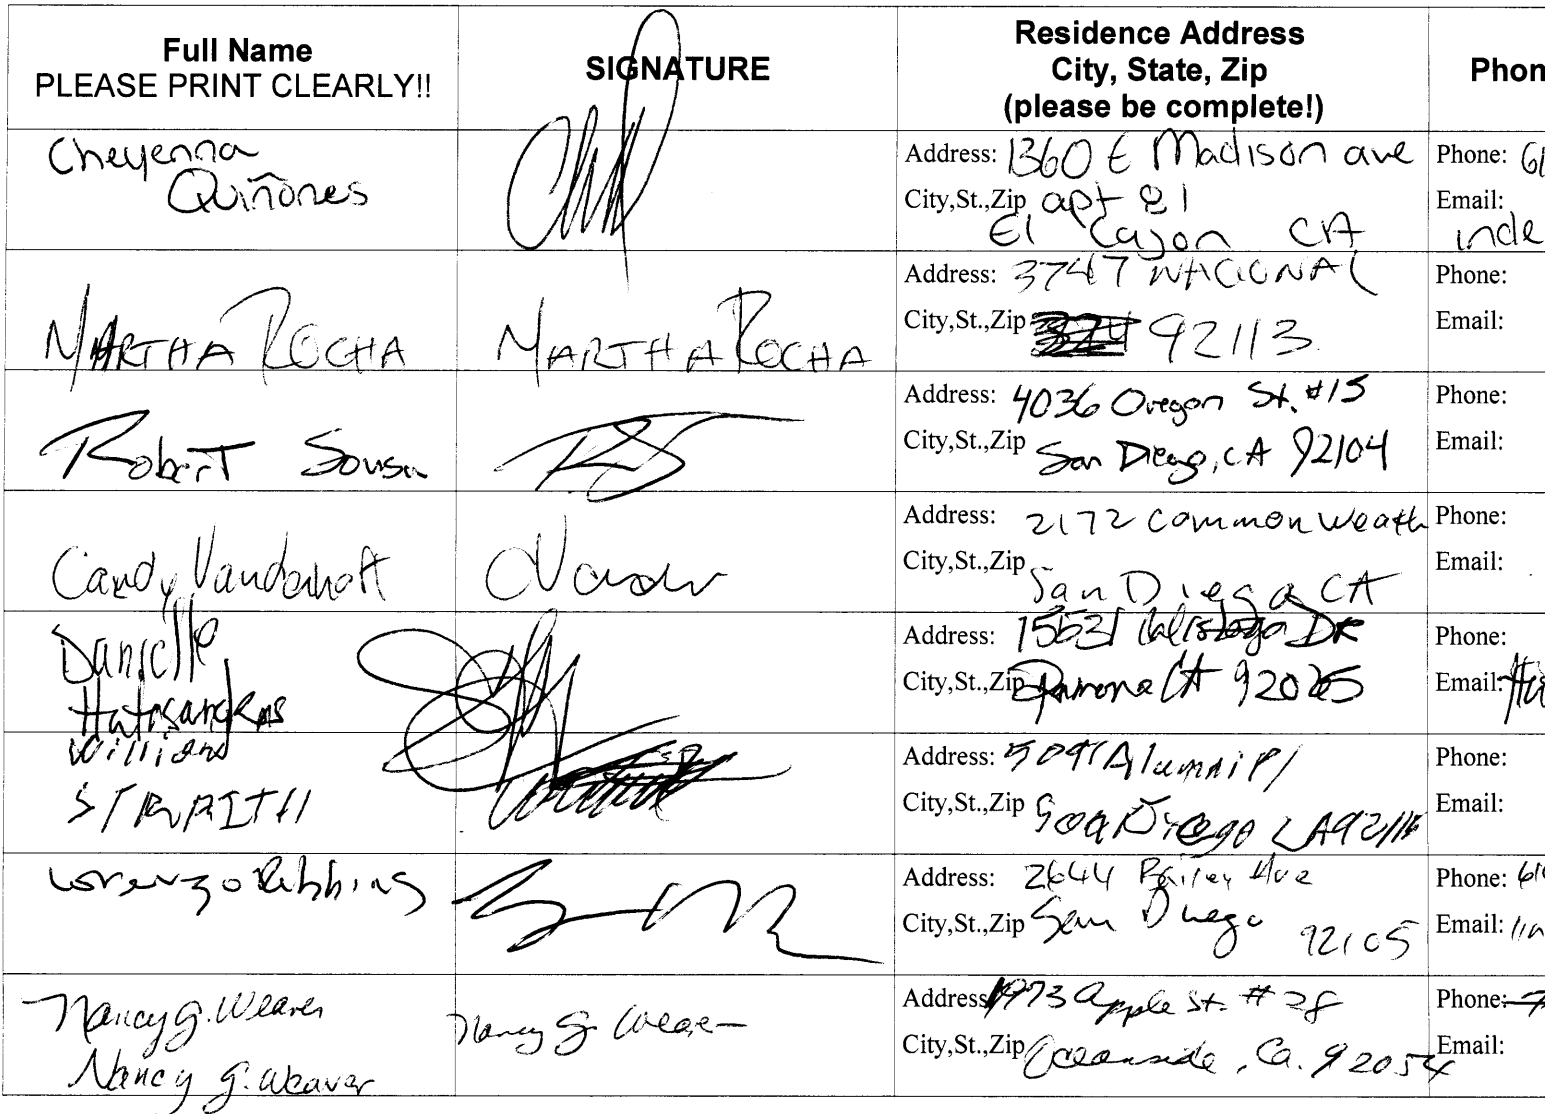 Full Name
PLEASE PRINT CLEARLY!!
SIGNATURE
Residence Address
City, State, Zip
(please be complete!)
Phon
Cheyenna
Quiñones
Address: 1360 E Madison ave
City,St.,Zip apt 81
El Cajon CA
Phone: 61
Email:
inde
MARTHA ROCHA
MARTHA ROCHA
Address: 3747 NACIONAL
City,St.,Zip 92113
Phone:
Email:
Robert Sousa
RS
Address: 4036 Oregon St. #15
City,St.,Zip San Diego, CA 92104
Phone:
Email:
Candy Vanderhoft
Address: 2172 Common Weath
City,St.,Zip San Diego CA
Phone:
Email:
Danielle
Address: Calistoga DR
City,St.,Zip Ramona CA
Phone:
Email:
William
Address: Alumni Pl
City,St.,Zip San Diego CA
Phone:
Email:
Lorenzo Robbins
Address: 2644 Bailey Ave
City,St.,Zip San Diego 92105
Phone: 61
Email:
Nancy G. Weaver
Nancy G. Weaver
Nancy G. Weaver
Address: 1973 Apple St. # 28
City,St.,Zip Oceanside, Ca. 92054
Phone:
Email: